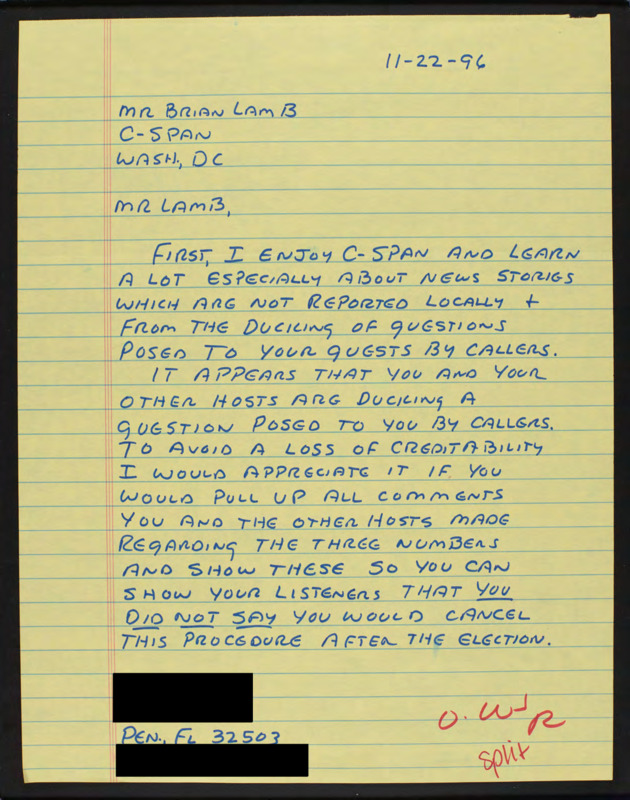 11-22-96
MR BRIAN LAMB
C-SPAN
WASH., DC
MR LAMB,
FIRST, I ENJOY C-SPAN AND LEARN
A LOT ESPECIALLY ABOUT NEWS STORIES
WHICH ARE NOT REPORTED LOCALLY +
FROM THE DUCKING OF QUESTIONS
POSED TO YOUR GUESTS BY CALLERS.
IT APPEARS THAT YOU AND YOUR
OTHER HOSTS ARE DUCKING A
QUESTION POSED TO YOU BY CALLERS.
TO AVOID A LOSS OF CREDITABILITY
I WOULD APPRECIATE IT IF YOU
WOULD PULL UP ALL COMMENTS
YOU AND THE OTHER HOSTS MADE
REGARDING THE THREE NUMBERS
AND SHOW THESE SO YOU CAN
SHOW YOUR LISTENERS THAT YOU
DID NOT SAY YOU WOULD CANCEL
THIS PROCEDURE AFTER THE ELECTION.
PEN., FL 32503
split